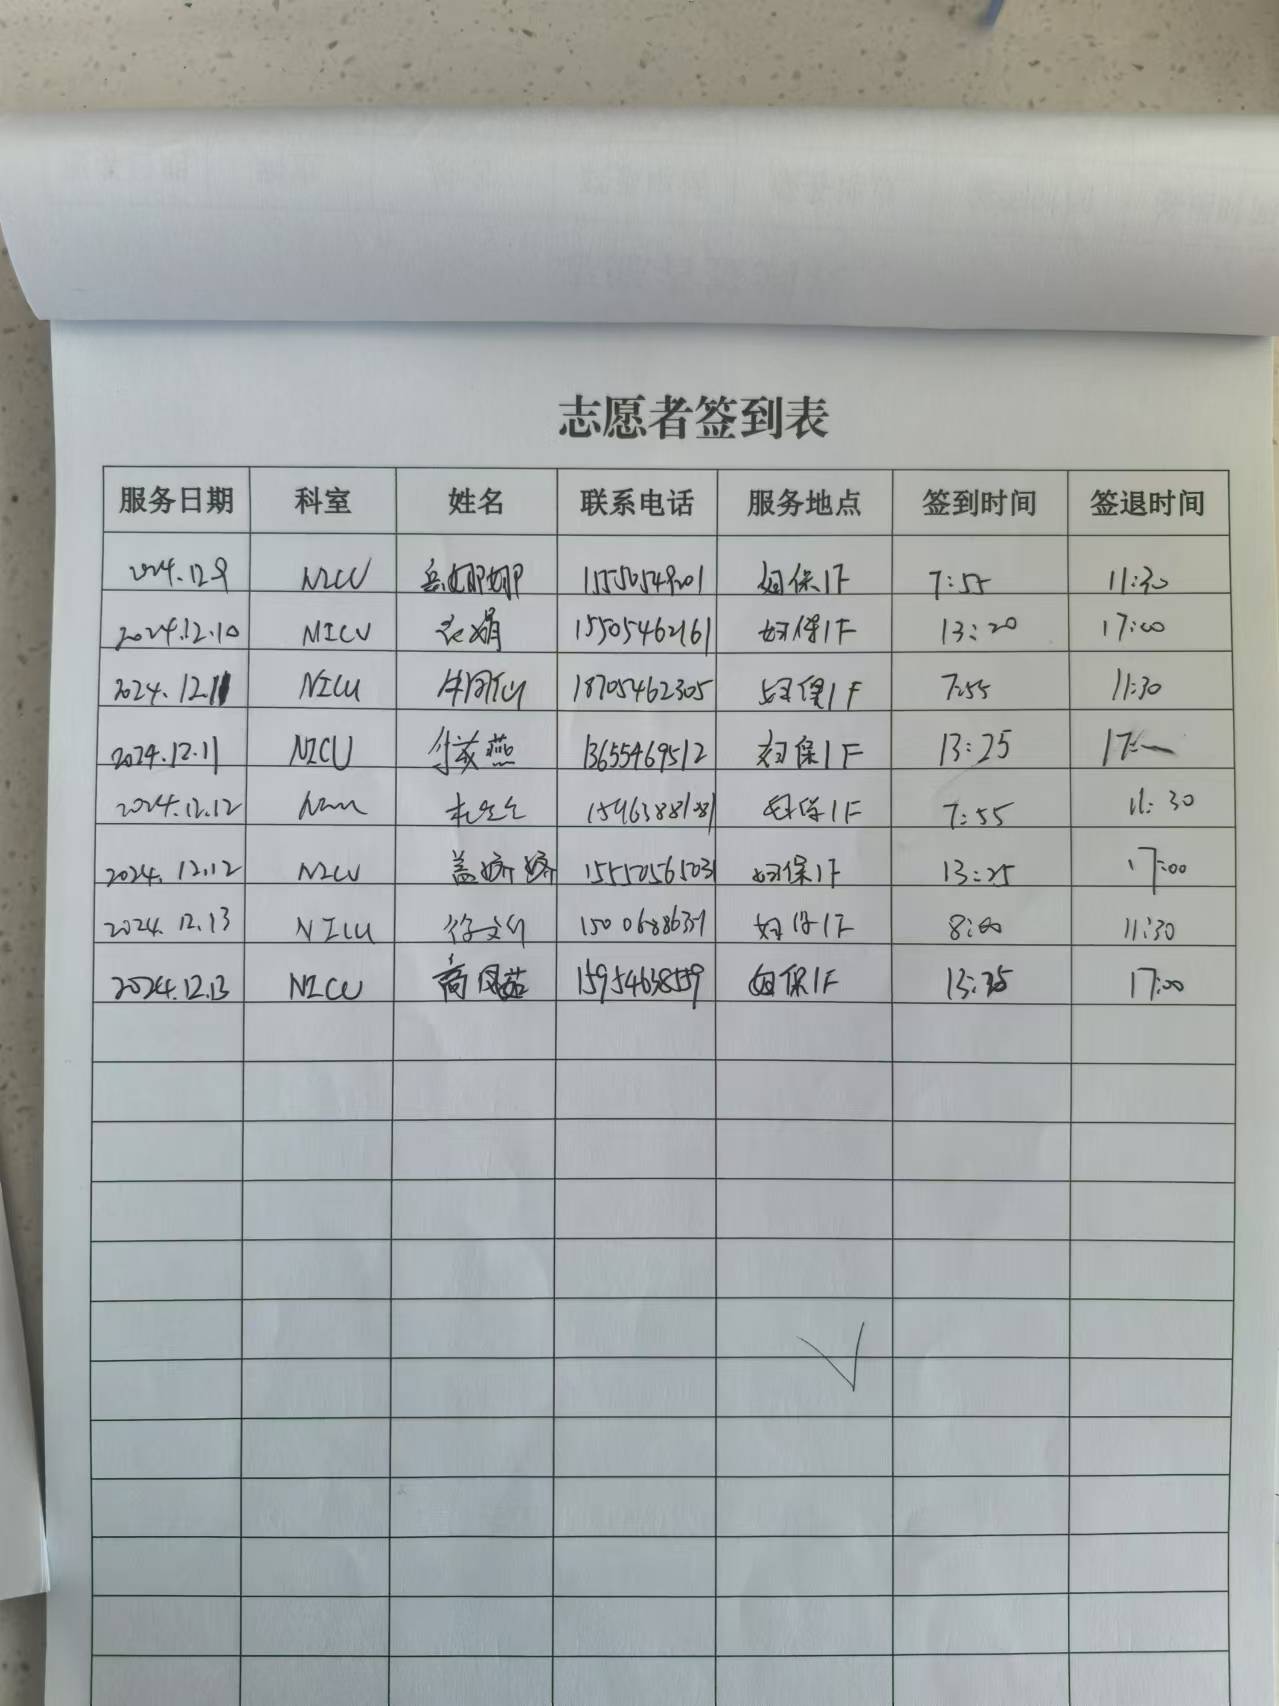 志愿者签到表
服务日期 科室 姓名 联系电话 服务地点 签到时间 签退时间
2024.12.9 NICU 岳娜娜 15550549201 妇保1F 7:55 11:30
2024.12.10 NICU 衣娟 15505462161 妇保1F 13:20 17:00
2024.12.11 NICU 18705462305 妇保1F 7:55 11:30
2024.12.11 NICU 燕 13655469512 妇保1F 13:25 17:
2024.12.12 妇保1F 7:55 11:30
2024.12.12 NICU 盖娇娇 15550565031 妇保1F 13:25 17:00
2024.12.13 NICU 徐文 妇保1F 8:00 11:30
2024.12.13 NICU 高凤茹 15954638559 妇保1F 17:00